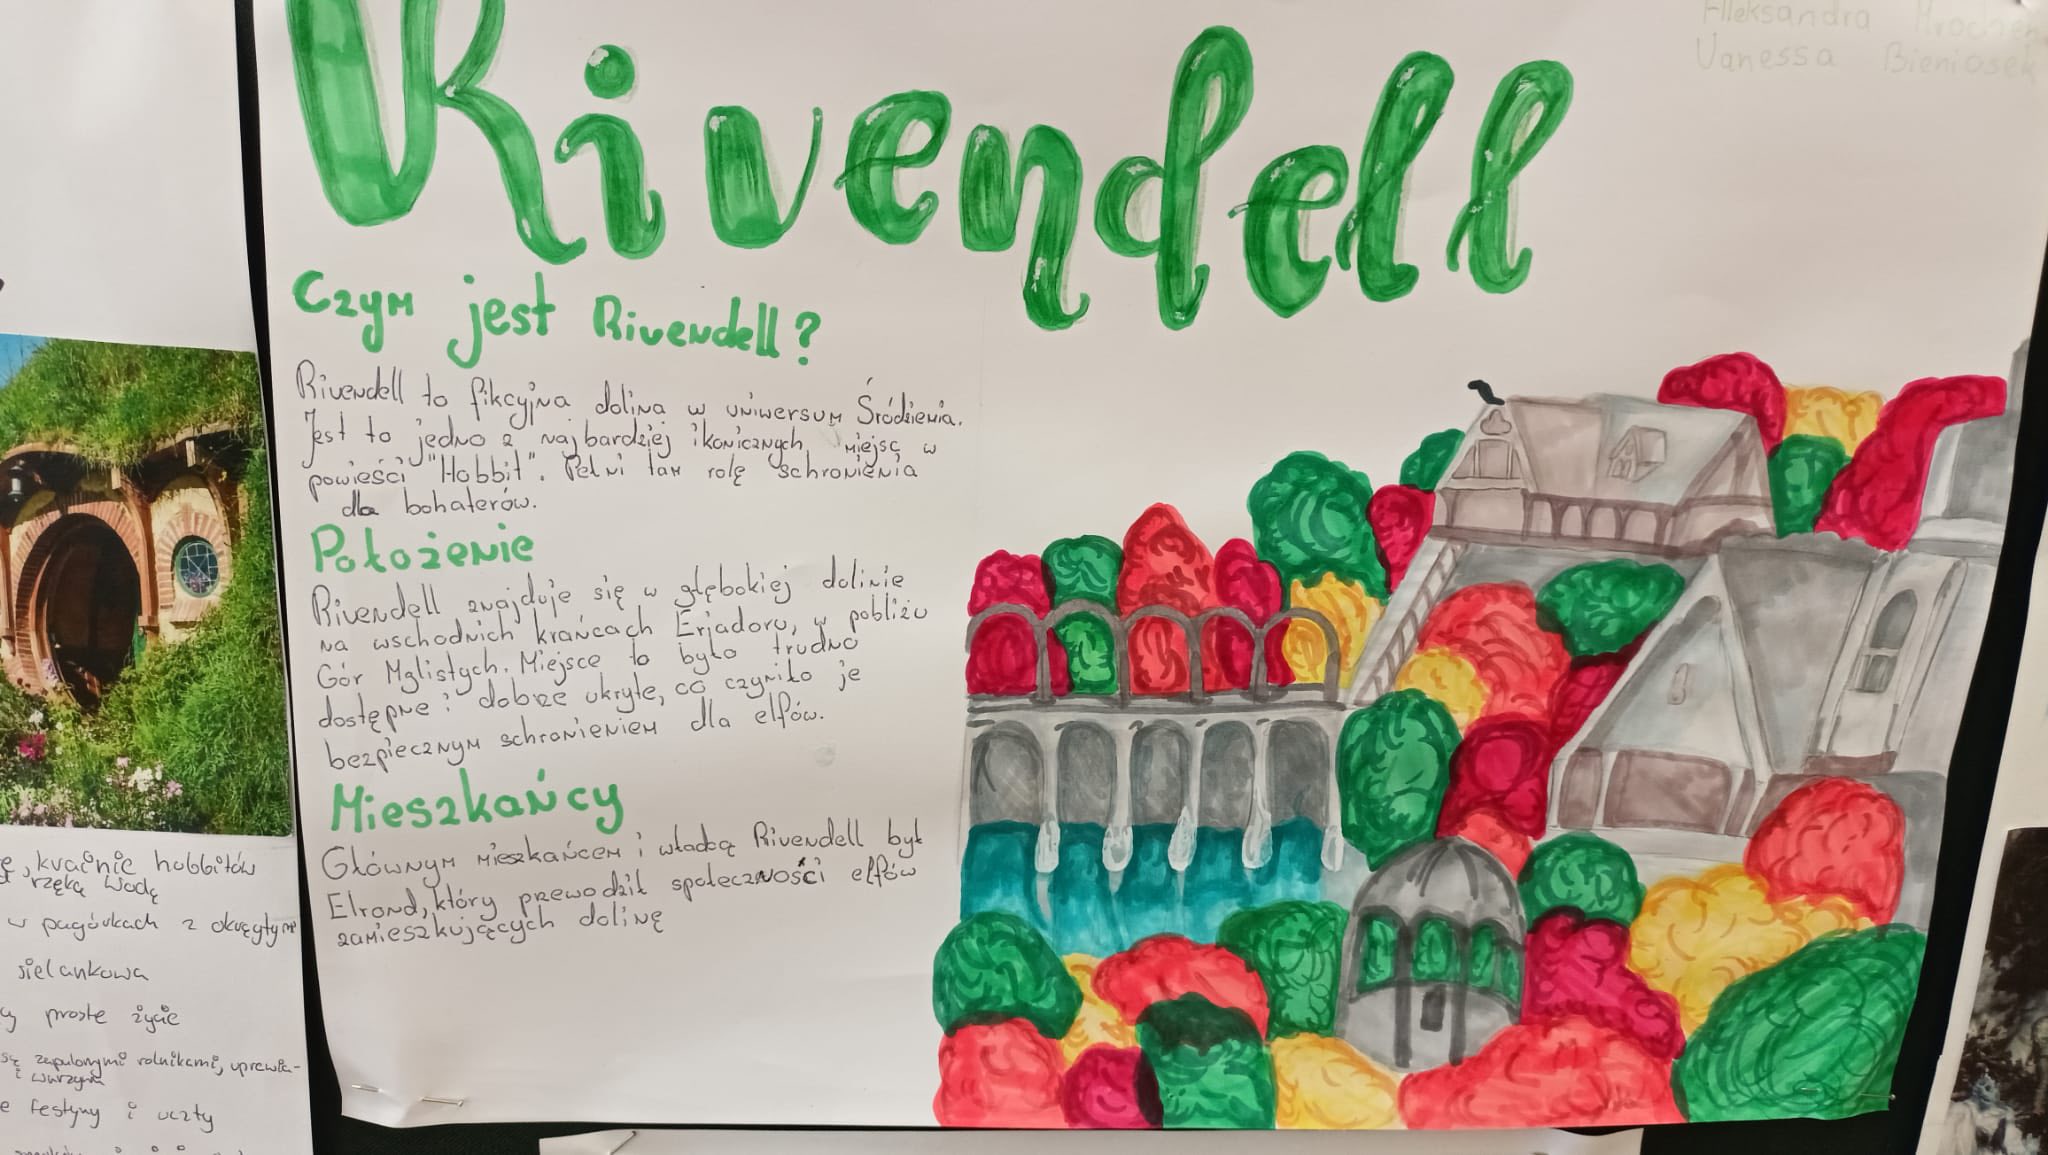 Rivendell
Alleksandra
Vanessa Bieniasek
Czym jest Rivendell?
Rivendell to fikcyjna dolina w uniwersum Śródzienia.
Jest to jedno z najbardziej ikonicznych miejsc w
powieści "Hobbit". Pełni tam rolę schronienia
dla bohaterów.
Położenie
Rivendell znajduje się w głębokiej dolinie
na wschodnich krańcach Eriadoru, w pobliżu
Gór Mglistych. Miejsce to było trudno
dostępne i dobrze ukryte, co czyniło je
bezpiecznym schronieniem dla elfów.
Mieszkańcy
Głównym mieszkańcem i władcą Rivendell był
Elrond, który przewodził społeczności elfów
zamieszkujących dolinę
krainie hobbitów
rzeką Wodą
w pagórkach z okrągłymi
sielankowa
proste życie
zapalonymi rolnikami, uprawia-
i warzywa
festyny i uczty